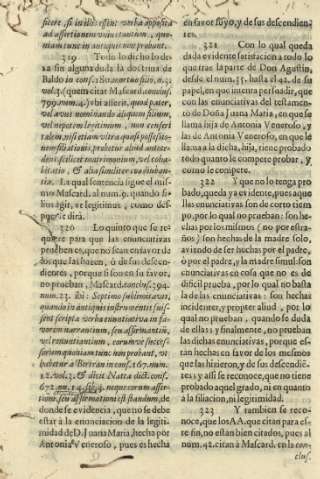 sicere, est in illis esse: verba apposita
ad assertionem vim situntium, quo-
niam tunc in antiquis non probant.
319 Todo lo dicho lo de-
xa sin alguna duda la doctrina de
Baldo in cons.
vol.3. (quem citat Mascard.
799.num.4.) ibi asserit, quod pater,
vel avus nominando aliquem filium,
vel nepotem legitimum, non confert
talem,
sionem filiationis, probetur aliud antece-
dens, scilicet matrimonium, vel coha-
bitatio, &
tio. La qual sentencia sigue el mis-
mo Mascard. al num.9. quando fi-
lius agit, ut legitimus; como des-
pues se dirà.
320 Lo quinto que se re-
quiere para que las enunciativas
prueben es, que no sean en favor de
los que las hacen, ò de sus descen-
dientes, porque si son en su favor,
no prueban, Mascard.
num.23. ibi: Septimo sublimitavis,
quando in antiquis instrumentis suis-
sent scripta verba enuntiativa in fa-
vorem narrantium, seu affirmantium,
vel enuntiantium, eorumve succes-
sorum quoniam tunc non probant, ut
habetur à Bertran in cons.167. num.
12.vol.2. &
672.
tione, seu affirmationi est standum, de
donde se evidencia, que no se debe
estàr à la enunciacion de la legiti-
midad de D. Juana Maria, hecha por
Antonia Veneroso, y pues es hecha
en favor suyo, y de sus descendien-
tes.
321 Con lo qual queda
dada evidente satisfaccion à todo lo
que trae la parte de Don Agustin,
desde el num.35. hasta el 42. de su
papel, en que intenta persuadir, que
con las enunciativas del testamen-
to de Doña Juana Maria, en que se
llama hija de Antonia Veneroso, y
las de Antonia Veneroso, en que le
llama à la dicha, hija, tiene probado
todo quanto le compete probar, y
como le compete.
322 Y que no lo tenga pro-
bado, queda yà evidente, pues aque-
llas enunciativas son de corto tiem-
po, por lo qual no prueban: son he-
chas por los mismos (no por estra-
ños) son hechas de la madre solo,
aviendo de ser hechas por el padre,
ò por el padre, y la madre simul: son
enunciativas en cosa que no es de
dificil prueba, por lo qual no basta
la de las enunciativas: son hechas
incidenter, propter aliud, por lo
qual no prueban, quando se duda
de ellas: y finalmente, no prueban
las dichas enunciativas, porque es-
tàn hechas en favor de los mismos
que las hicieron, y de sus descendi-
entes: y assi se reconoce, que no tiene
probado aquel grado, ni en quanto
à la filiacion, ni legitimidad.
323 Y tambien se reco-
noce, que los AA. que citan para es-
te fin, no estàn bien citados, pues al
num.42. citan à Mascard. en la con-
clus.